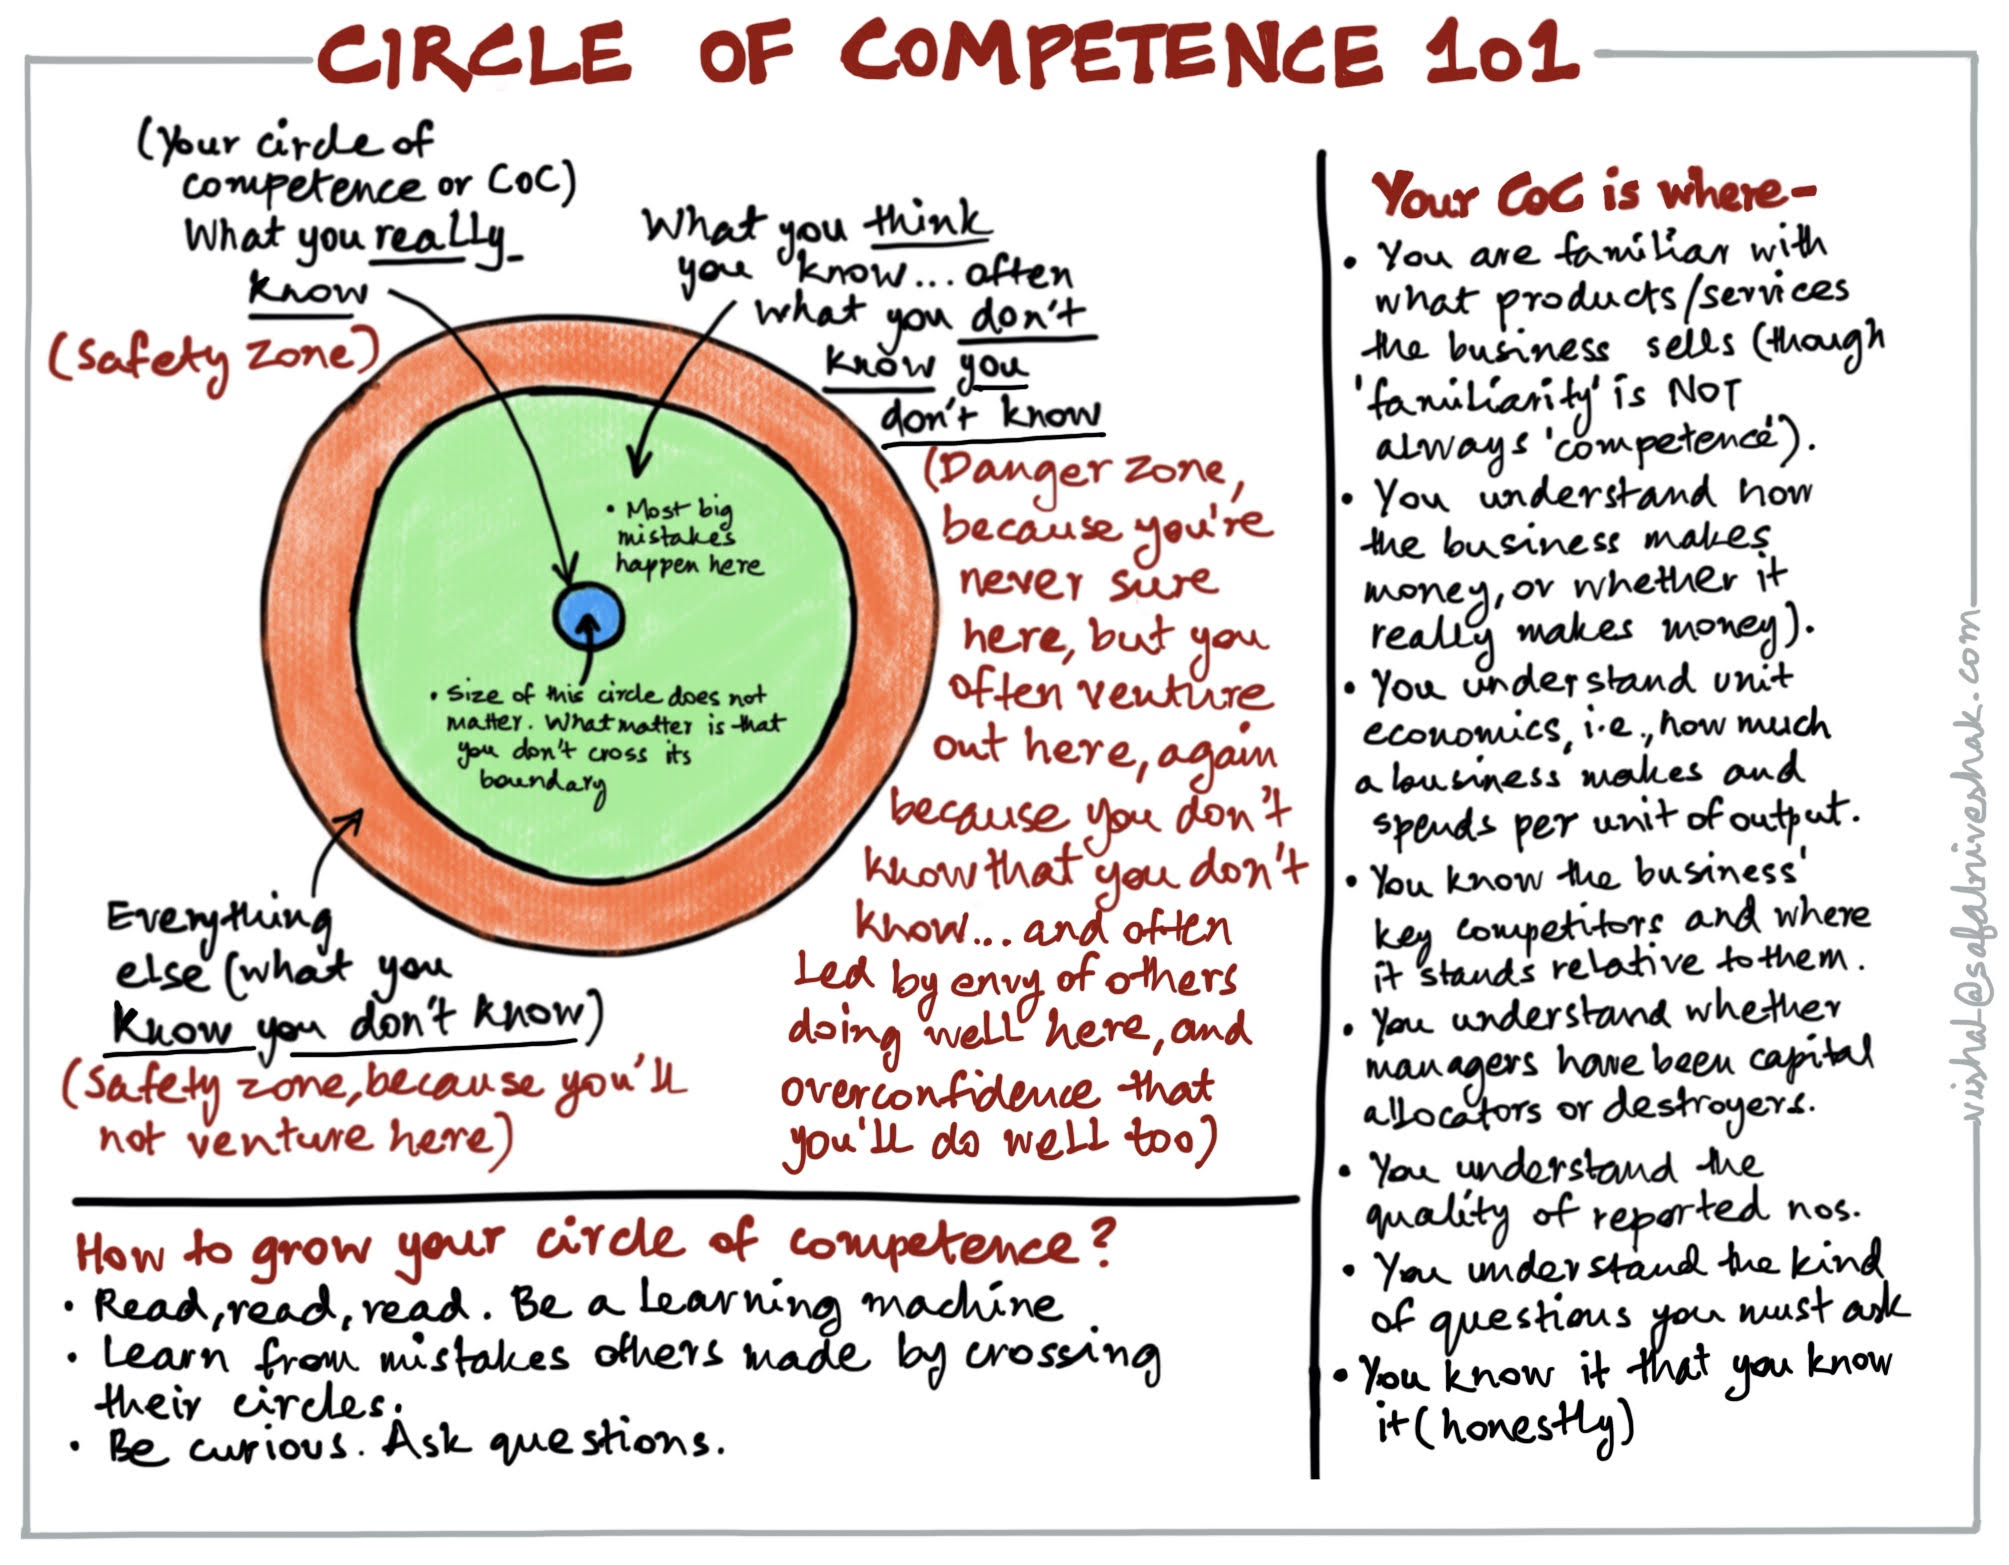 CIRCLE OF COMPETENCE 101
(Your circle of
competence or CoC)
What you really
know
(Safety zone)
What you think
you know... often
what you don't
know you
don't know
(Danger zone,
because you're
never sure
here, but you
often venture
out here, again
because you don't
know that you don't
know... and often
led by envy of others
doing well here, and
overconfidence that
you'll do well too)
• Most big
mistakes
happen here
• Size of this circle does not
matter. What matter is that
you don't cross its
boundary
Everything
else (what you
know you don't know)
(Safety zone, because you'll
not venture here)
How to grow your circle of competence?
• Read, read, read. Be a learning machine
• Learn from mistakes others made by crossing
their circles.
• Be curious. Ask questions.
Your CoC is where-
• You are familiar with
what products/services
the business sells (though
'familiarity' is NOT
always 'competence').
• You understand how
the business makes
money, or whether it
really makes money).
• You understand unit
economics, i.e., how much
a business makes and
spends per unit of output.
• You know the business'
key competitors and where
it stands relative to them.
• You understand whether
managers have been capital
allocators or destroyers.
• You understand the
quality of reported nos.
• You understand the kind
of questions you must ask
• You know it that you know
it (honestly)
vishal@safalniveshak.com